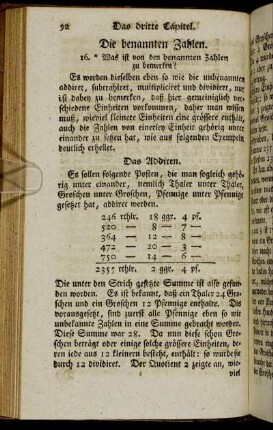 92 Das dritte Capitel.
Die benannten Zahlen.
16. * Was ist von den benannten Zahlen
zu bemerken?
Es werden dieselben eben so wie die unbenannten
addiret, subtrahiret, multipliciret und dividiret, nur
ist dabey zu bemerken, daß hier gemeiniglich ver-
schiedene Einheiten vorkommen, daher man wissen
muß, wieviel kleinere Einheiten eine grössere enthält,
auch die Zahlen von einerley Einheit gehörig unter
einander zu setzen hat, wie aus folgenden Exempeln
deutlich erhellet.
Das Addiren.
Es sollen folgende Posten, die man sogleich gehö-
rig unter einander, nemlich Thaler unter Thaler,
Groschen unter Groschen, Pfennige unter Pfennige
gesetzet hat, addiret werden.
246 rthlr. 18 ggr. 4 pf.
520 — 8 — 7 —
364 — 12 — 8 —
472 — 20 — 3 —
750 — 14 — 6 —
2355 rthlr. 2 ggr. 4 pf.
Die unter den Strich gesetzte Summe ist also gefun-
den worden. Es ist bekannt, daß ein Thaler 24 Gro-
schen und ein Groschen 12 Pfennige enthalte. Dis
vorausgesetzt, sind zuerst alle Pfennige eben so wie
unbenannte Zahlen in eine Summe gebracht worden.
Diese Summe war 28. Da nun diese schon Gro-
schen beträgt oder einige solche grössere Einheiten, de-
ren iede aus 12 kleinern bestehet, enthält: so wurde sie
durch 12 dividiret. Der Quotient 2 zeigte an, wie-
viel